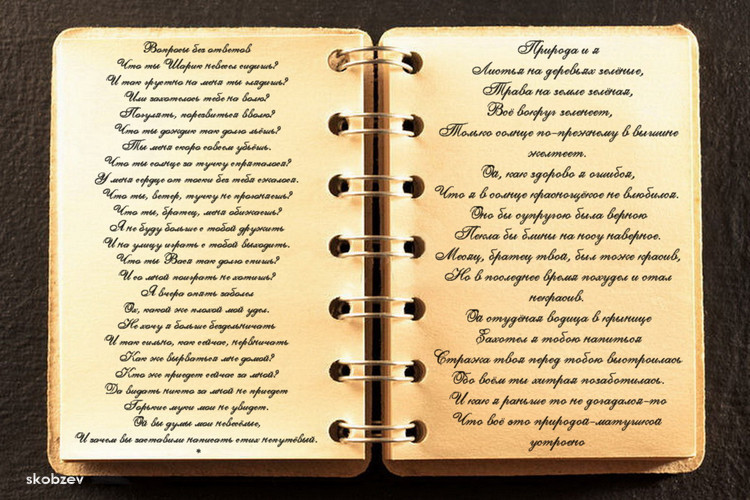 Вопросы без ответов
Что ты Шарик невесел сидишь?
И так грустно на меня ты глядишь?
Или захотелось тебе на волю?
Погулять, порезвиться вволю?
Что ты дождик так долго льёшь?
Ты меня скоро совсем убьёшь.
Что ты солнце за тучку спряталося?
У меня сердце от тоски без тебя сжалося.
Что ты, ветер, тучку не прогоняешь?
Что ты, братец, меня обижаешь?
А не буду больше с тобой дружить
И на улицу играть с тобой выходить.
Что ты Вася так долго спишь?
И со мной поиграть не хотишь?
А вчера опять заболел
Ох, какой же плохой мой удел.
Не хочу я больше бездельничать
И так сильно, как сейчас, нервничать
Как же вырваться мне домой?
Кто же приедет сейчас за мной?
Да видать никто за мной не приедет
Горькие муки мои не увидет.
Ой вы думы мои невесёлые,
И зачем вы заставили написать стих непутёвый.
*
Природа и я
Листья на деревьях зелёные,
Трава на земле зелёная,
Всё вокруг зеленеет,
Только солнце по-прежнему в вышине
желтеет.
Ой, как здорово я ошибся,
Что я в солнце краснощёкое не влюбился.
Оно бы супругою была верною
Пекла бы блины на носу наверное.
Месяц, братец твой, был тоже красив,
Но в последнее время похудел и стал
некрасив.
Ой студёная водица в крынице
Захотел я тобою напиться
Стража твоя перед тобою выстроилась
Обо всём ты хитрая позаботилась.
И как я раньше то не догадался-то
Что всё это природой-матушкой
устроено
skobzev